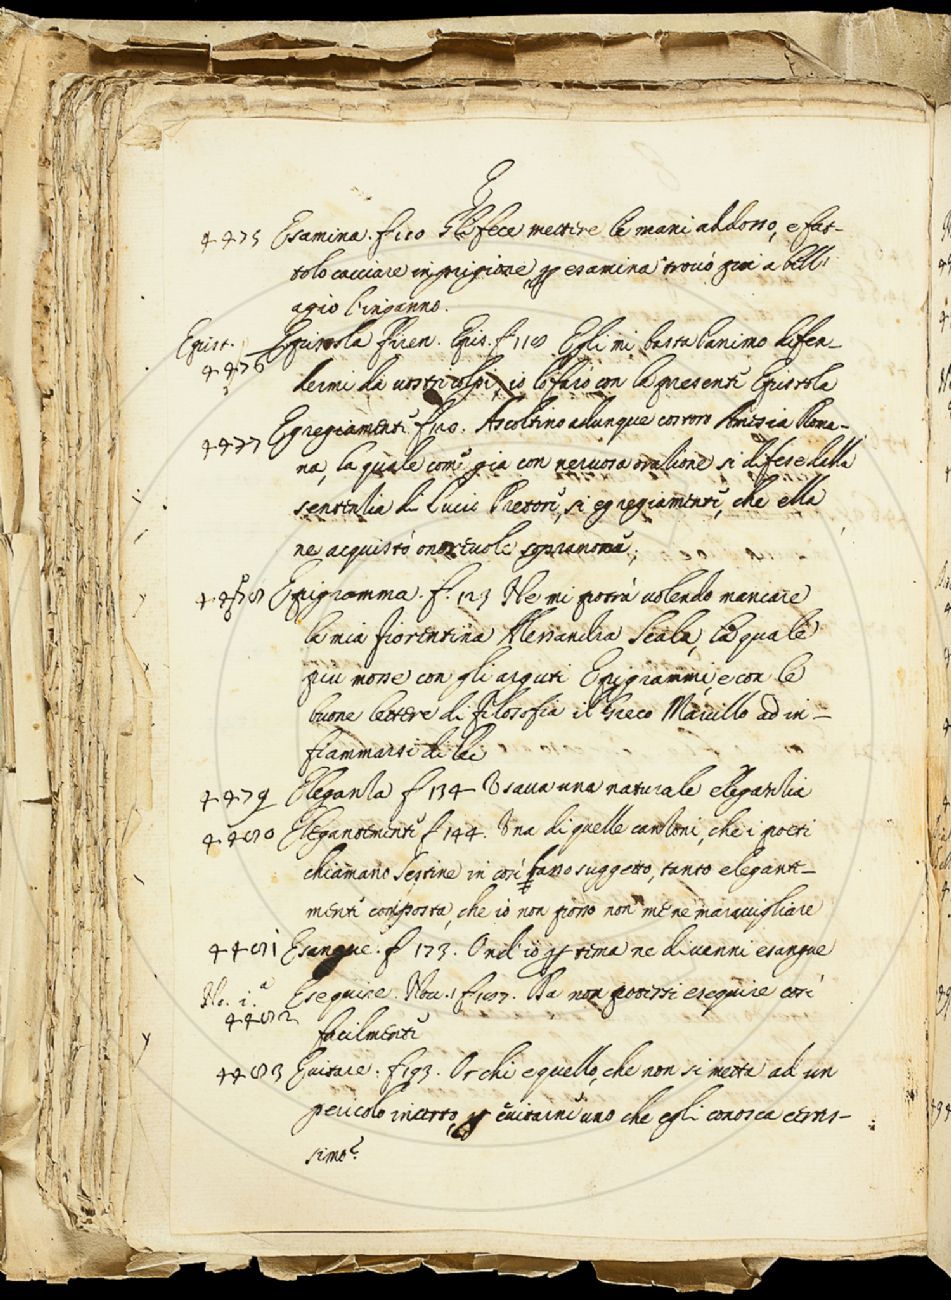 E
4475 Esamina. f 110 Gli fece mettere le mani addosso, e fat-
tolo cacciare in prigione per esamina trovò poi a bell'
agio l'inganno.
Epist. Epistola Firen. Epis. f 118 Egli mi basta l'animo difen-
4476 dermi da vostri colpi, io lo farò con la presente Epistola
4477 Egregiamente. f 120. Ascoltino adunque costoro Amesia Roma-
na, la quale come già con nervosa oratione si difese dalla
sententia di Lucio Pretore, si egregiamente, che ella
ne acquistò onorevole sopranome;
4478 Epigramma. f. 123 Ne mi potrà volendo mancare
la mia fiorentina Alessandra Scala, la quale
più mosse con gli arguti Epigrammi, e con le
buone lettere di filosofia il Greco Marullo ad in-
fiammarsi di lei
4479 Eleganza f 134 Usava una naturale elegantia
4480 Elegantemente f 144. Una di quelle canzoni, che i poeti
chiamano Sestine in così basso suggetto, tanto elegante-
mente composta, che io non posso non mene maravigliare
4481 Esangue. f 173. Ond'io per tema ne divenni esangue
No. i.a Eseguire. Nov. i f 187. Ma non potersi eseguire così
4482 facilmente
4483 Evitare. f 193. Or chi è quello, che non si metta ad un
pericolo incerto, per evitarne uno che egli conosca certis-
simo?